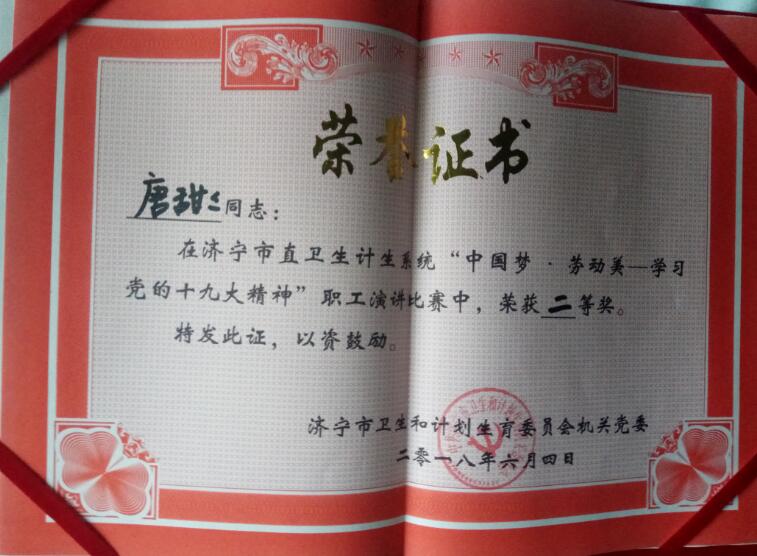 荣誉证书
唐甜甜同志：
在济宁市直卫生计生系统“中国梦·劳动美—学习
党的十九大精神”职工演讲比赛中，荣获二等奖。
特发此证，以资鼓励。
济宁市卫生和计划生育委员会机关党委
二零一八年六月四日